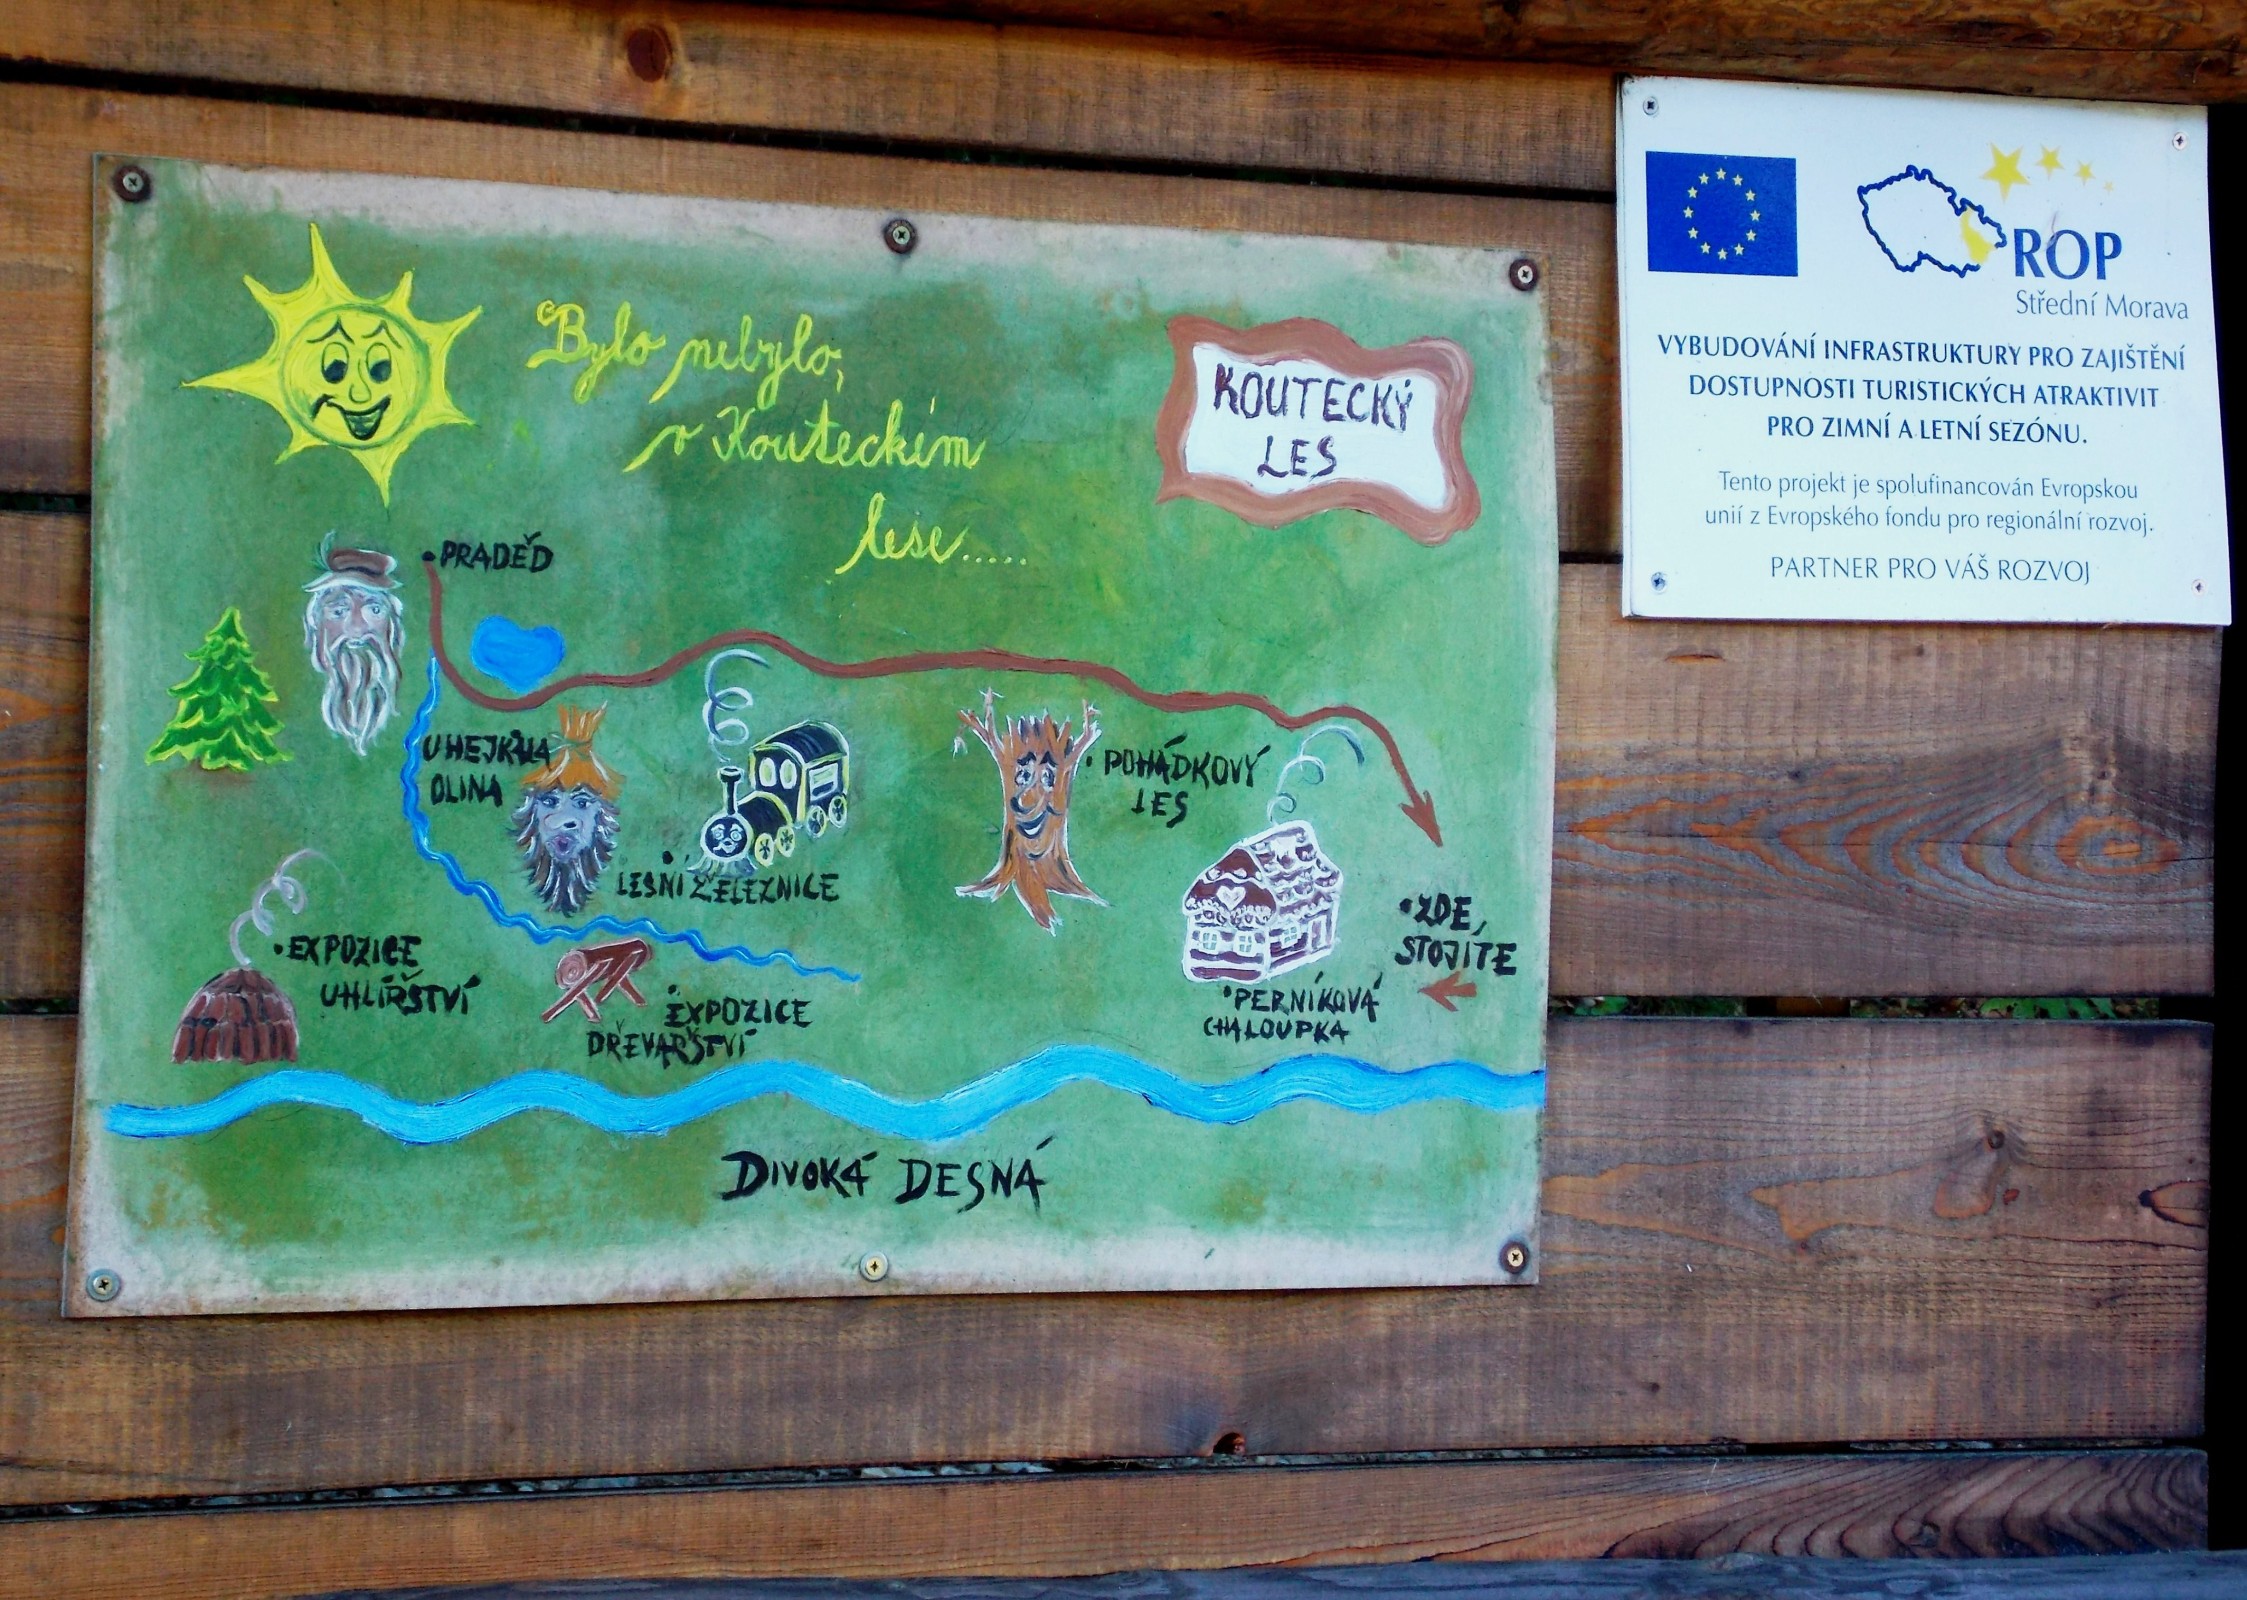 Bylo nebylo,
v Kouteckém
lese.....
KOUTECKÝ
LES
PRADĚD
U HEJKALA
OLINA
LESNÍ ŽELEZNICE
POHÁDKOVÝ
LES
EXPOZICE
UHLÍŘSTVÍ
EXPOZICE
DŘEVAŘSTVÍ
PERNÍKOVÁ
CHALOUPKA
ZDE,
STOJÍTE
DIVOKÁ DESNÁ
ROP
Střední Morava
VYBUDOVÁNÍ INFRASTRUKTURY PRO ZAJIŠTĚNÍ
DOSTUPNOSTI TURISTICKÝCH ATRAKTIVIT
PRO ZIMNÍ A LETNÍ SEZÓNU.
Tento projekt je spolufinancován Evropskou
unií z Evropského fondu pro regionální rozvoj.
PARTNER PRO VÁŠ ROZVOJ